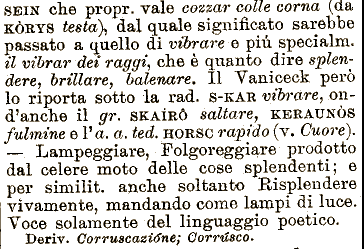 SEIN che propr. vale cozzar colle corna (da
KÒRYS testa), dal quale significato sarebbe
passato a quello di vibrare e più specialm.
il vibrar dei raggi, che è quanto dire splen-
dere, brillare, balenare. Il Vaniceck però
lo riporta sotto la rad. S-KAR vibrare, on-
d'anche il gr. SKAÍRÔ saltare, KERAUNÒS
fulmine e l'a. a. ted. HORSC rapido (v. Cuore).
— Lampeggiare, Folgoreggiare prodotto
dal celere moto delle cose splendenti; e
per similit. anche soltanto Risplendere
vivamente, mandando come lampi di luce.
Voce solamente del linguaggio poetico.
Deriv. Corruscazióne; Corrúsco.